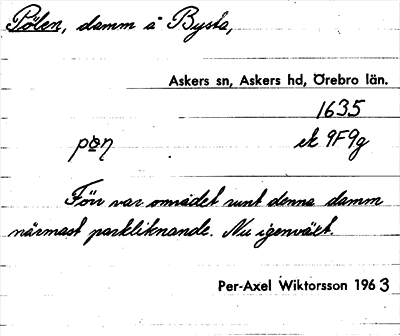 Pölen, damm å Bysta,
Askers sn, Askers hd, Örebro län.
1635
ek 9F9g
Förr var området runt denna damm
närmast parkliknande. Nu igenväxt.
Per-Axel Wiktorsson 1963